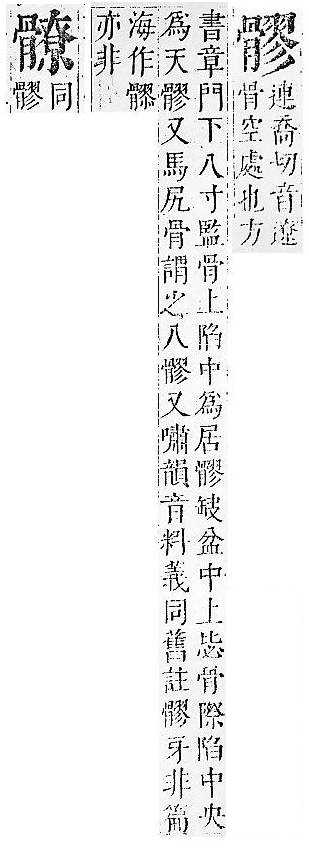 髎
連喬切音遼
骨空處也方
書章門下八寸監骨上陷中爲居髎缺盆中上毖骨際陷中央
爲天髎又馬尻骨謂之八髎又嘯韻音料義同舊註髎牙非篇
海作
亦非
同
髎